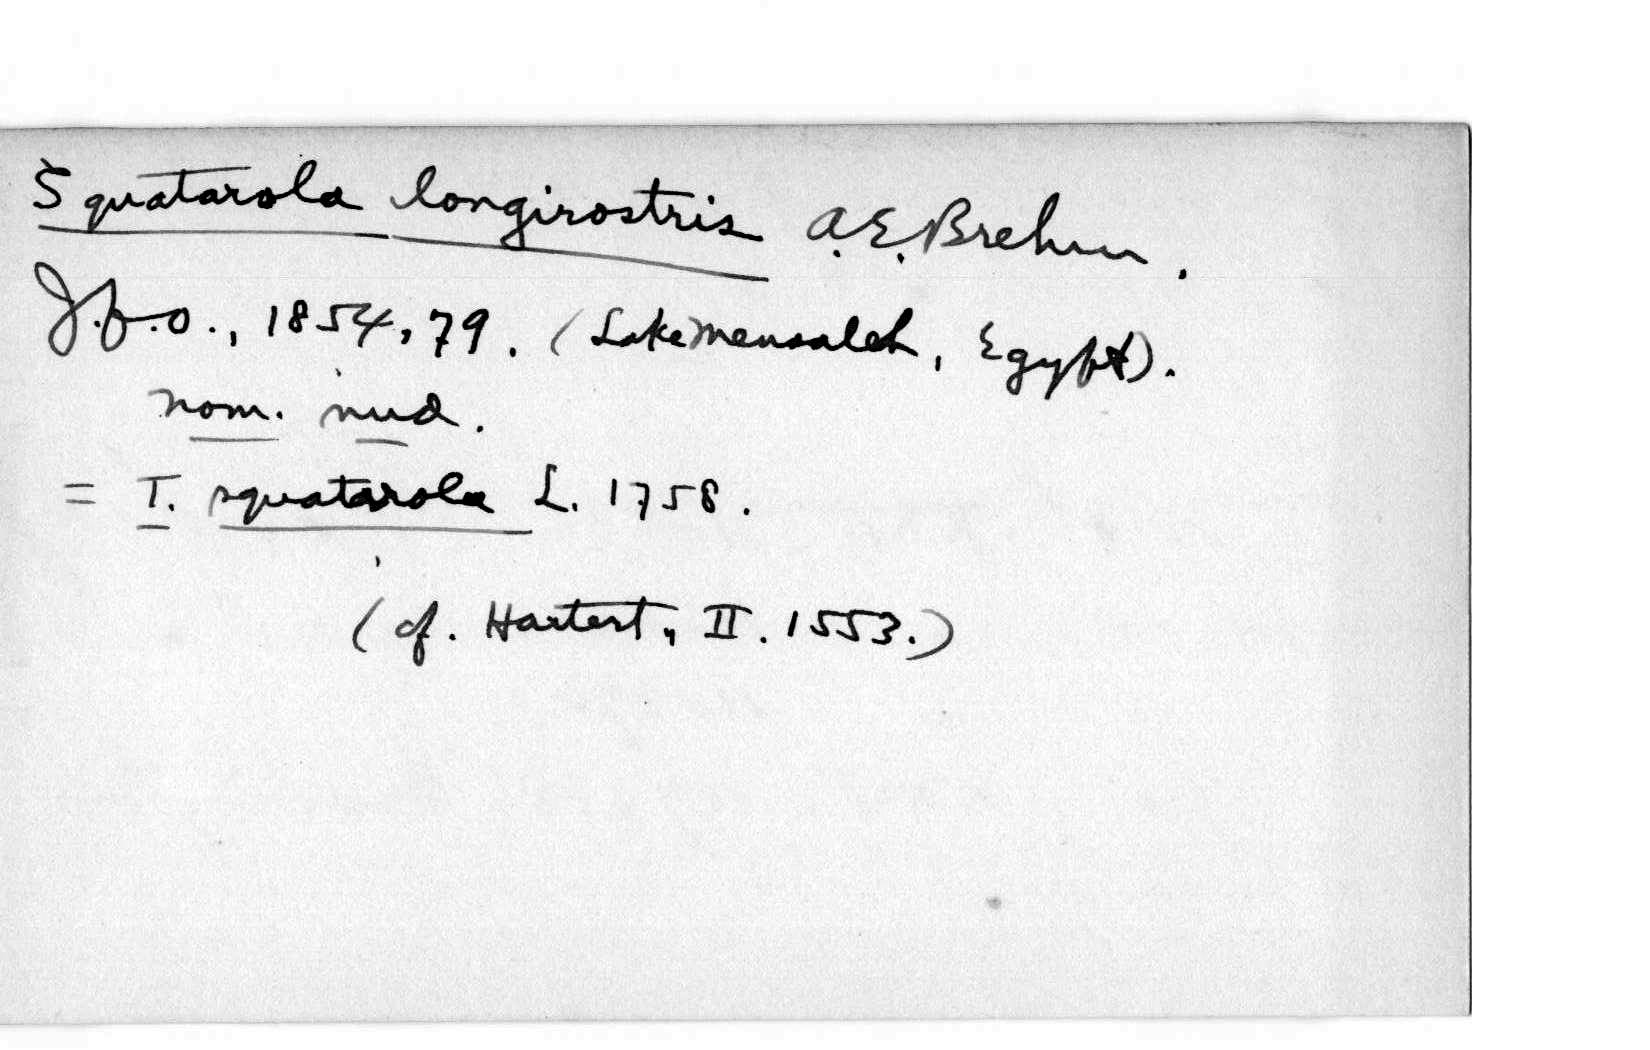 Squatarola longirostris A.E. Brehm.
J.f.O., 1854, 79. (Lake Mensaleh, Egypt).
nom. nud.
= T. squatarola L. 1758.
(cf. Hartert, II. 1553.)